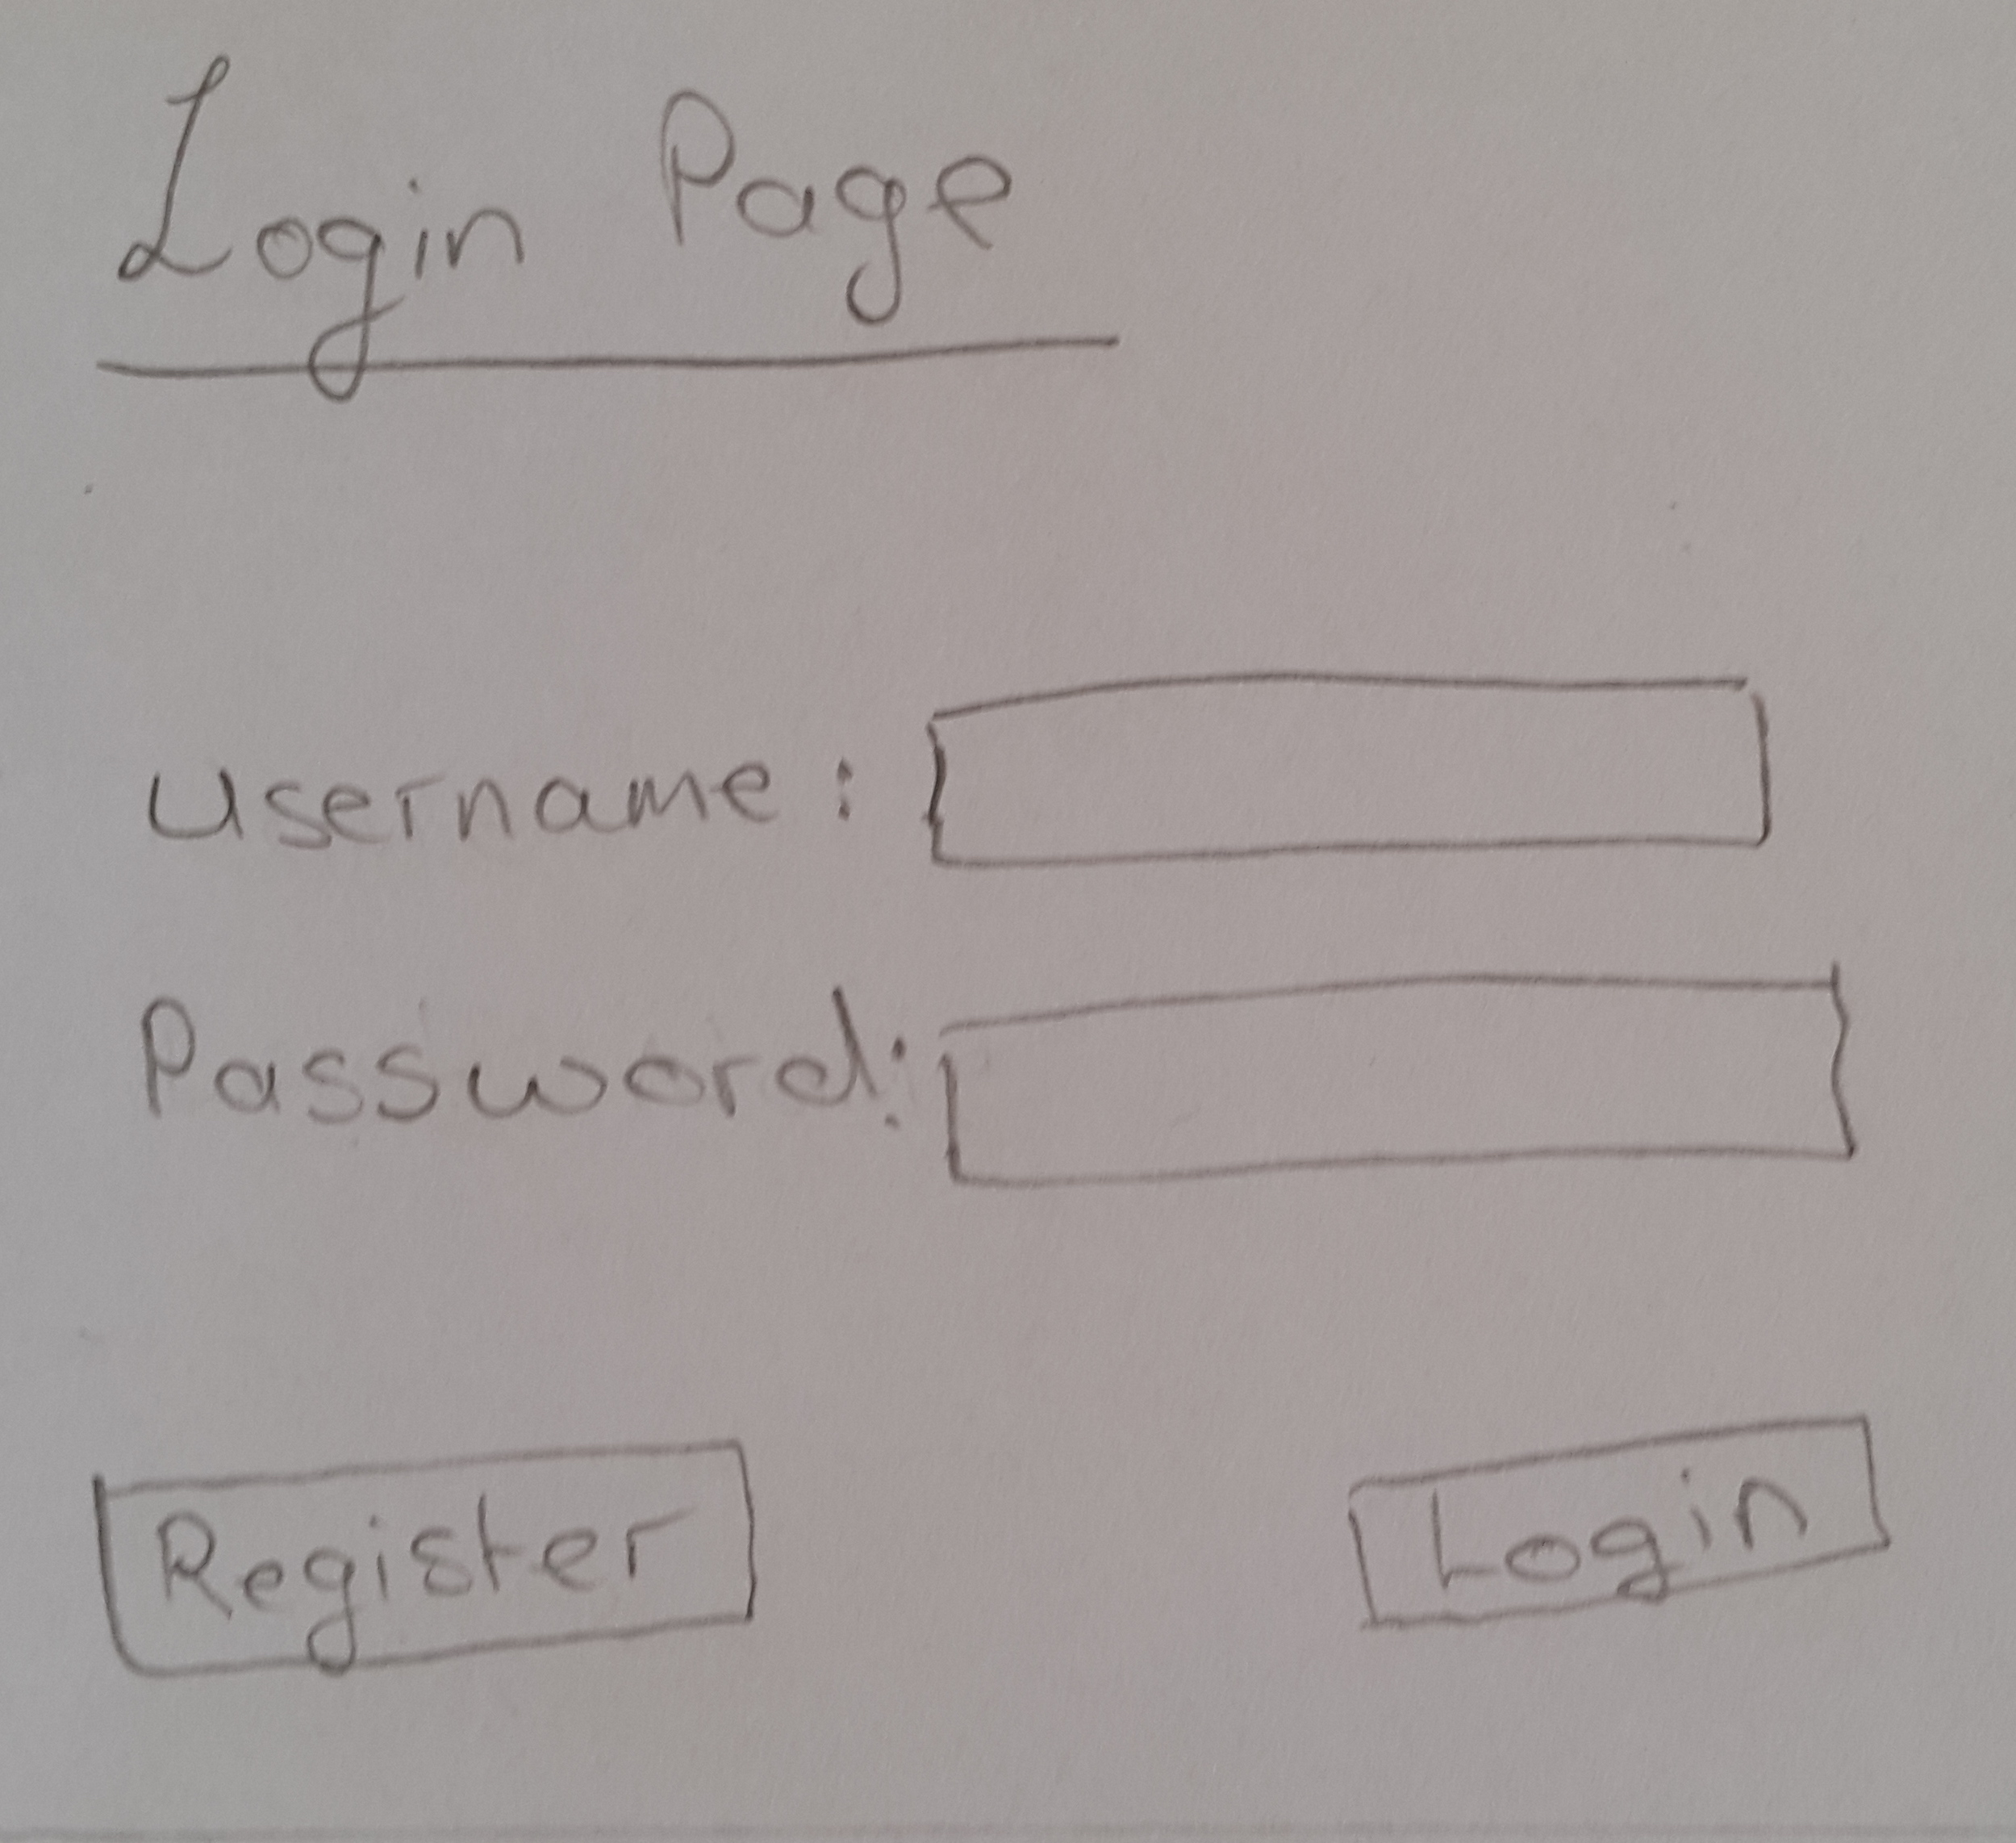 Login Page
username :
Password:
Register
Login